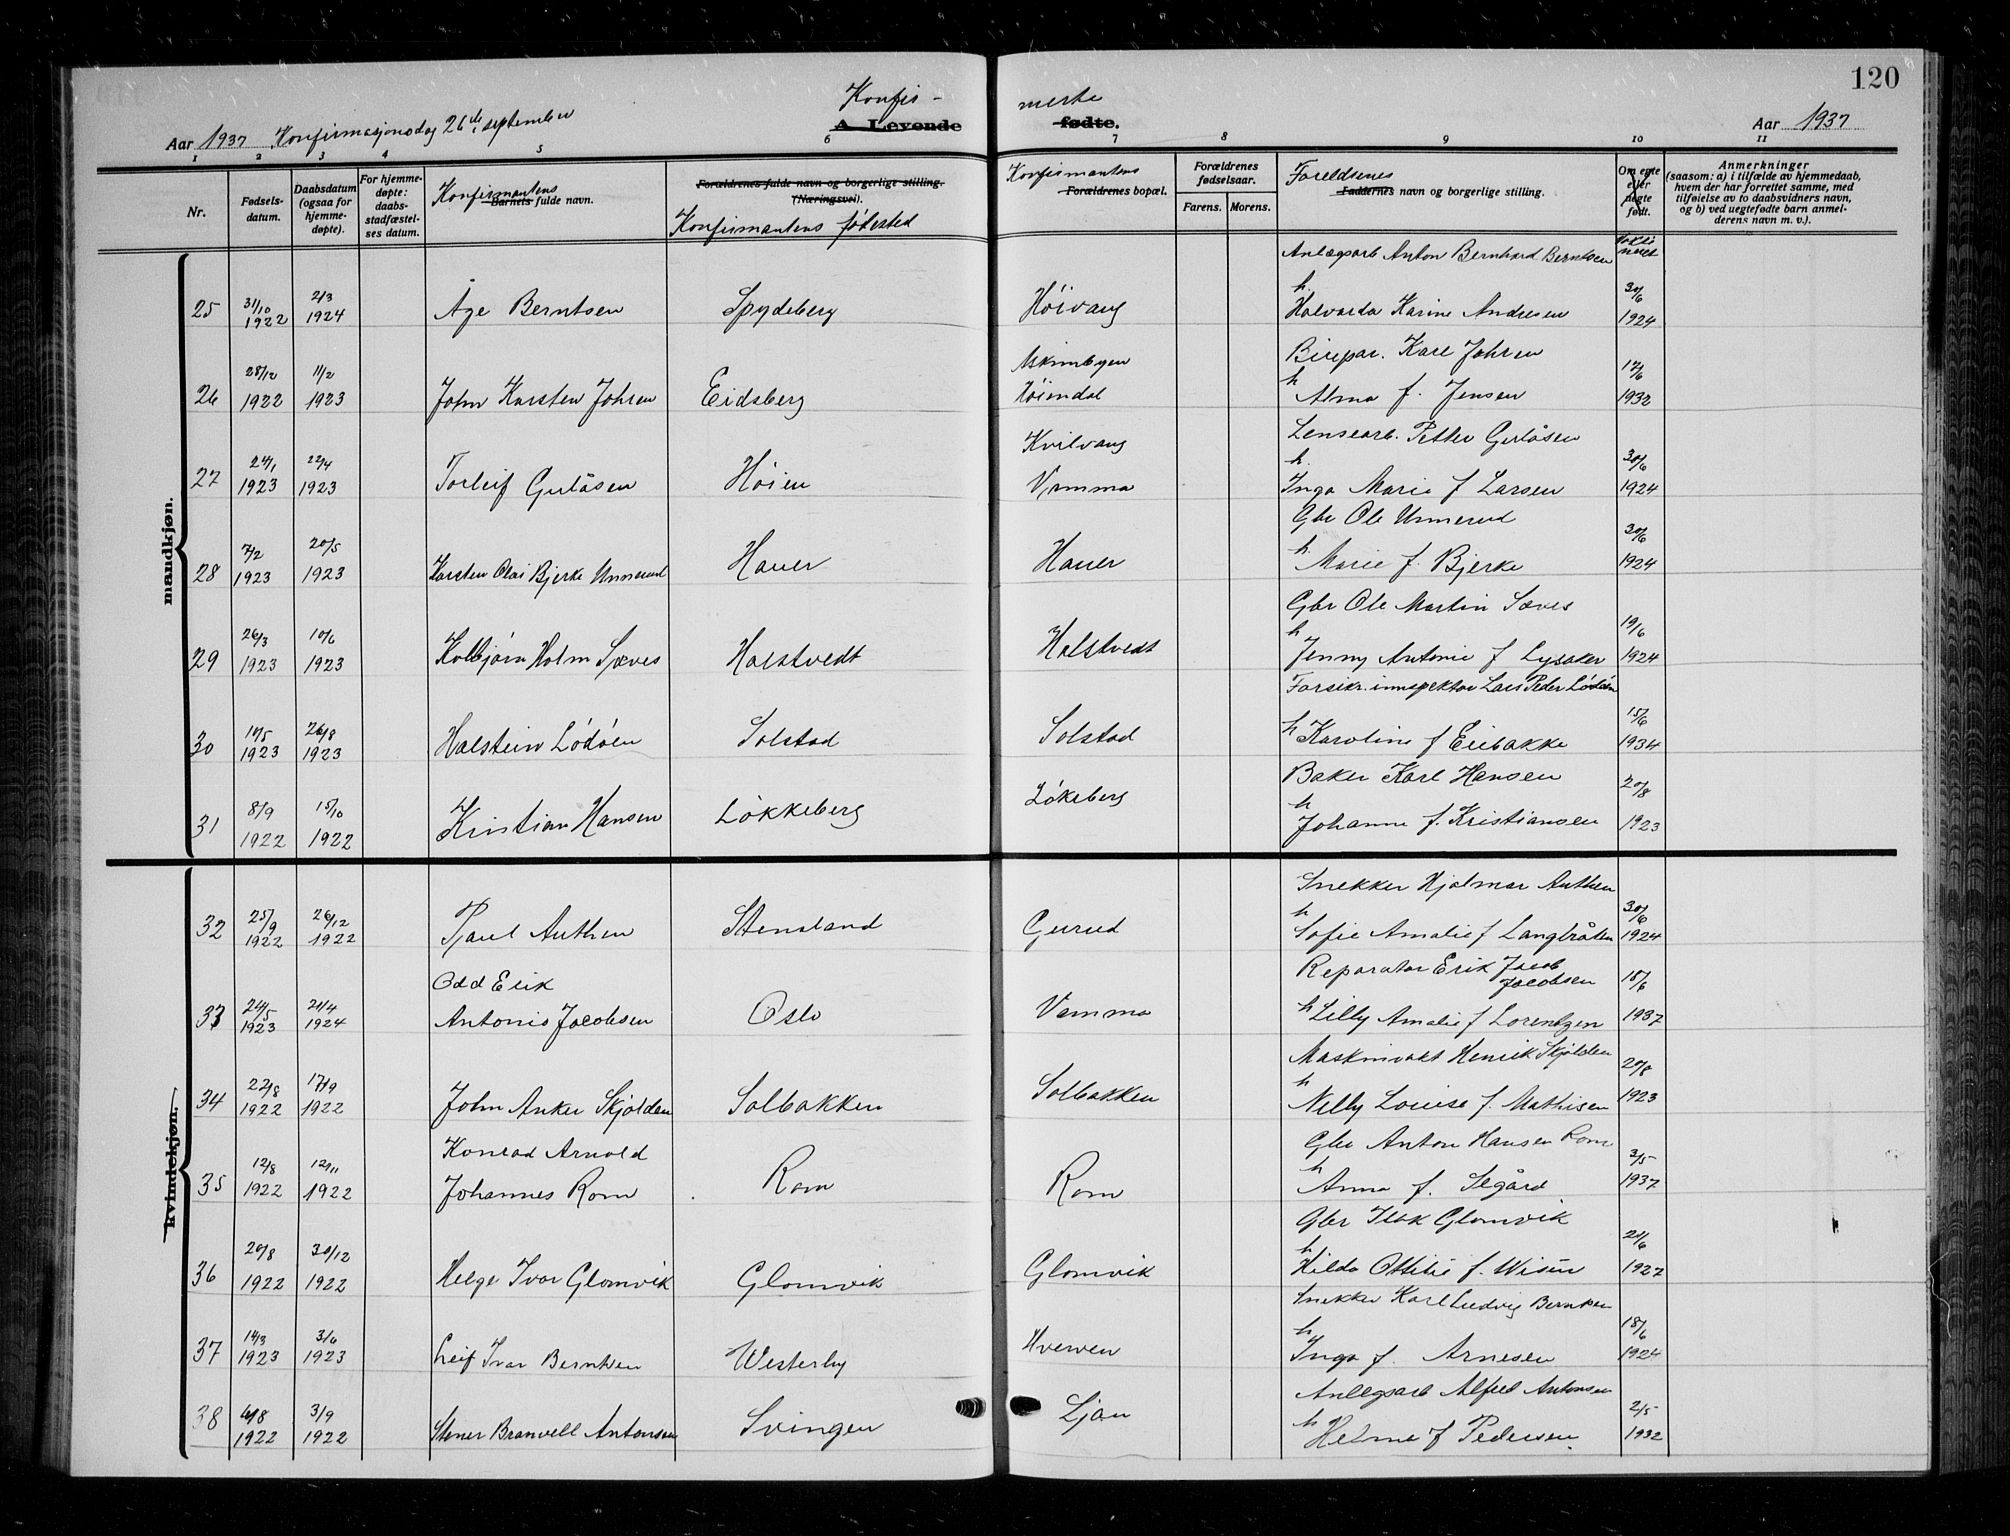 120
Konfis - merte
Aar 1937 Konfirmasjonsdag 26de september
A. Levende fødte.
Aar 1937
1 2 3 4 5 6 7 8 9 10 11
Nr.
Fødselsdatum.
Daabsdatum (ogsaa for hjemmedøpte).
For hjemmedøpte: daabsstadfæstelses datum.
Konfirmantens
Barnets fulde navn.
Forældrenes fulde navn og borgerlige stilling.
(Næringsvei).
Konfirmantens fødested
Konfirmantens
Forældrenes bopæl.
Forældrenes fødselsaar.
Farens. Morens.
Foreldrenes
Faddernes navn og borgerlige stilling.
Om egte eller uegte født.
Anmerkninger
(saasom: a) i tilfælde av hjemmedaab, hvem der har forrettet samme, med tilføielse av to daabsvidners navn, og b) ved uegtefødte barn anmelderens navn m. v.).
mandkjøn.
Anlægsarb Anton Bernhard Berntsen
25 31/10 1922 2/3 1924 Åge Berntsen Spydeberg Høivang h. Halvarda Karine Andresen 30/6 1924
Askimbyen Birepar. Karl Johren
26 28/12 1922 11/2 1923 John Karsten Johren Eidsberg Høiendal h Alma f. Jensen 17/6 1932
Kvilvang Lensearb. Petter Gulåsen
27 24/1 1923 22/4 1923 Torleif Gulåsen Høien Vamma h. Inga Marie f Larsen 30/6 1924
Gbr Ole Unnerud
28 7/2 1923 20/5 1923 Karsten Olai Bjerke Unnerud Hauer Hauer h Marie f. Bjerke 30/6 1924
Gbr Ole Martin Sæves
29 26/3 1923 10/6 1923 Kolbjørn Holm Sæves Halstvedt Halstvedt h Jenny Antonie f Lysaker 19/6 1924
Forsikr. innspektør Lars Peder Lødøen
30 10/5 1923 26/8 1923 Halstein Lødøen Solstad Solstad h Karoline f Eiebakke 15/6 1934
Baker Karl Hansen
31 8/9 1922 15/10 1922 Kristian Hansen Løkkeberg Løkeberg h Johanne f. Kristiansen 20/8 1923
kvindekjøn.
Snekker Hjalmar Authen
32 25/9 1922 26/12 1922 Paul Authen Stensland Gurud h Sofie Amalie f Langbråten 30/6 1924
Odd Erik Reparatør Erik Jacob Jacobsen
33 24/5 1923 21/4 1924 Antonio Jacobsen Oslo Vamma h Lilly Amalie f Lorentzen 18/6 1937
Maskinvakt Henrik Skjolden
34 22/8 1922 17/9 1922 John Anker Skjolden Solbakken Solbakken h Nelly Louise f. Mathisen 20/8 1923
Konrad Arnold Gbr Anton Hansen Rom
35 12/8 1922 12/11 1922 Johannes Rom Rom Rom h Anna f. Segård 3/5 1937
Gbr Isak Glomvik
36 20/8 1922 30/12 1922 Helge Ivar Glomvik Glomvik Glomvik h Hilda Ottilie f. Wisur 21/6 1927
Snekker Karl Ludvig Berntsen
37 14/3 1923 3/6 1923 Leif Ivar Berntsen Westerby Hverven h Inga f. Arnesen 18/6 1924
Anlegsarb Alfred Antonsen
38 6/8 1922 3/9 1922 Stener Branvell Antonsen Svingen Ljan h Helma f Pedersen 2/5 1932